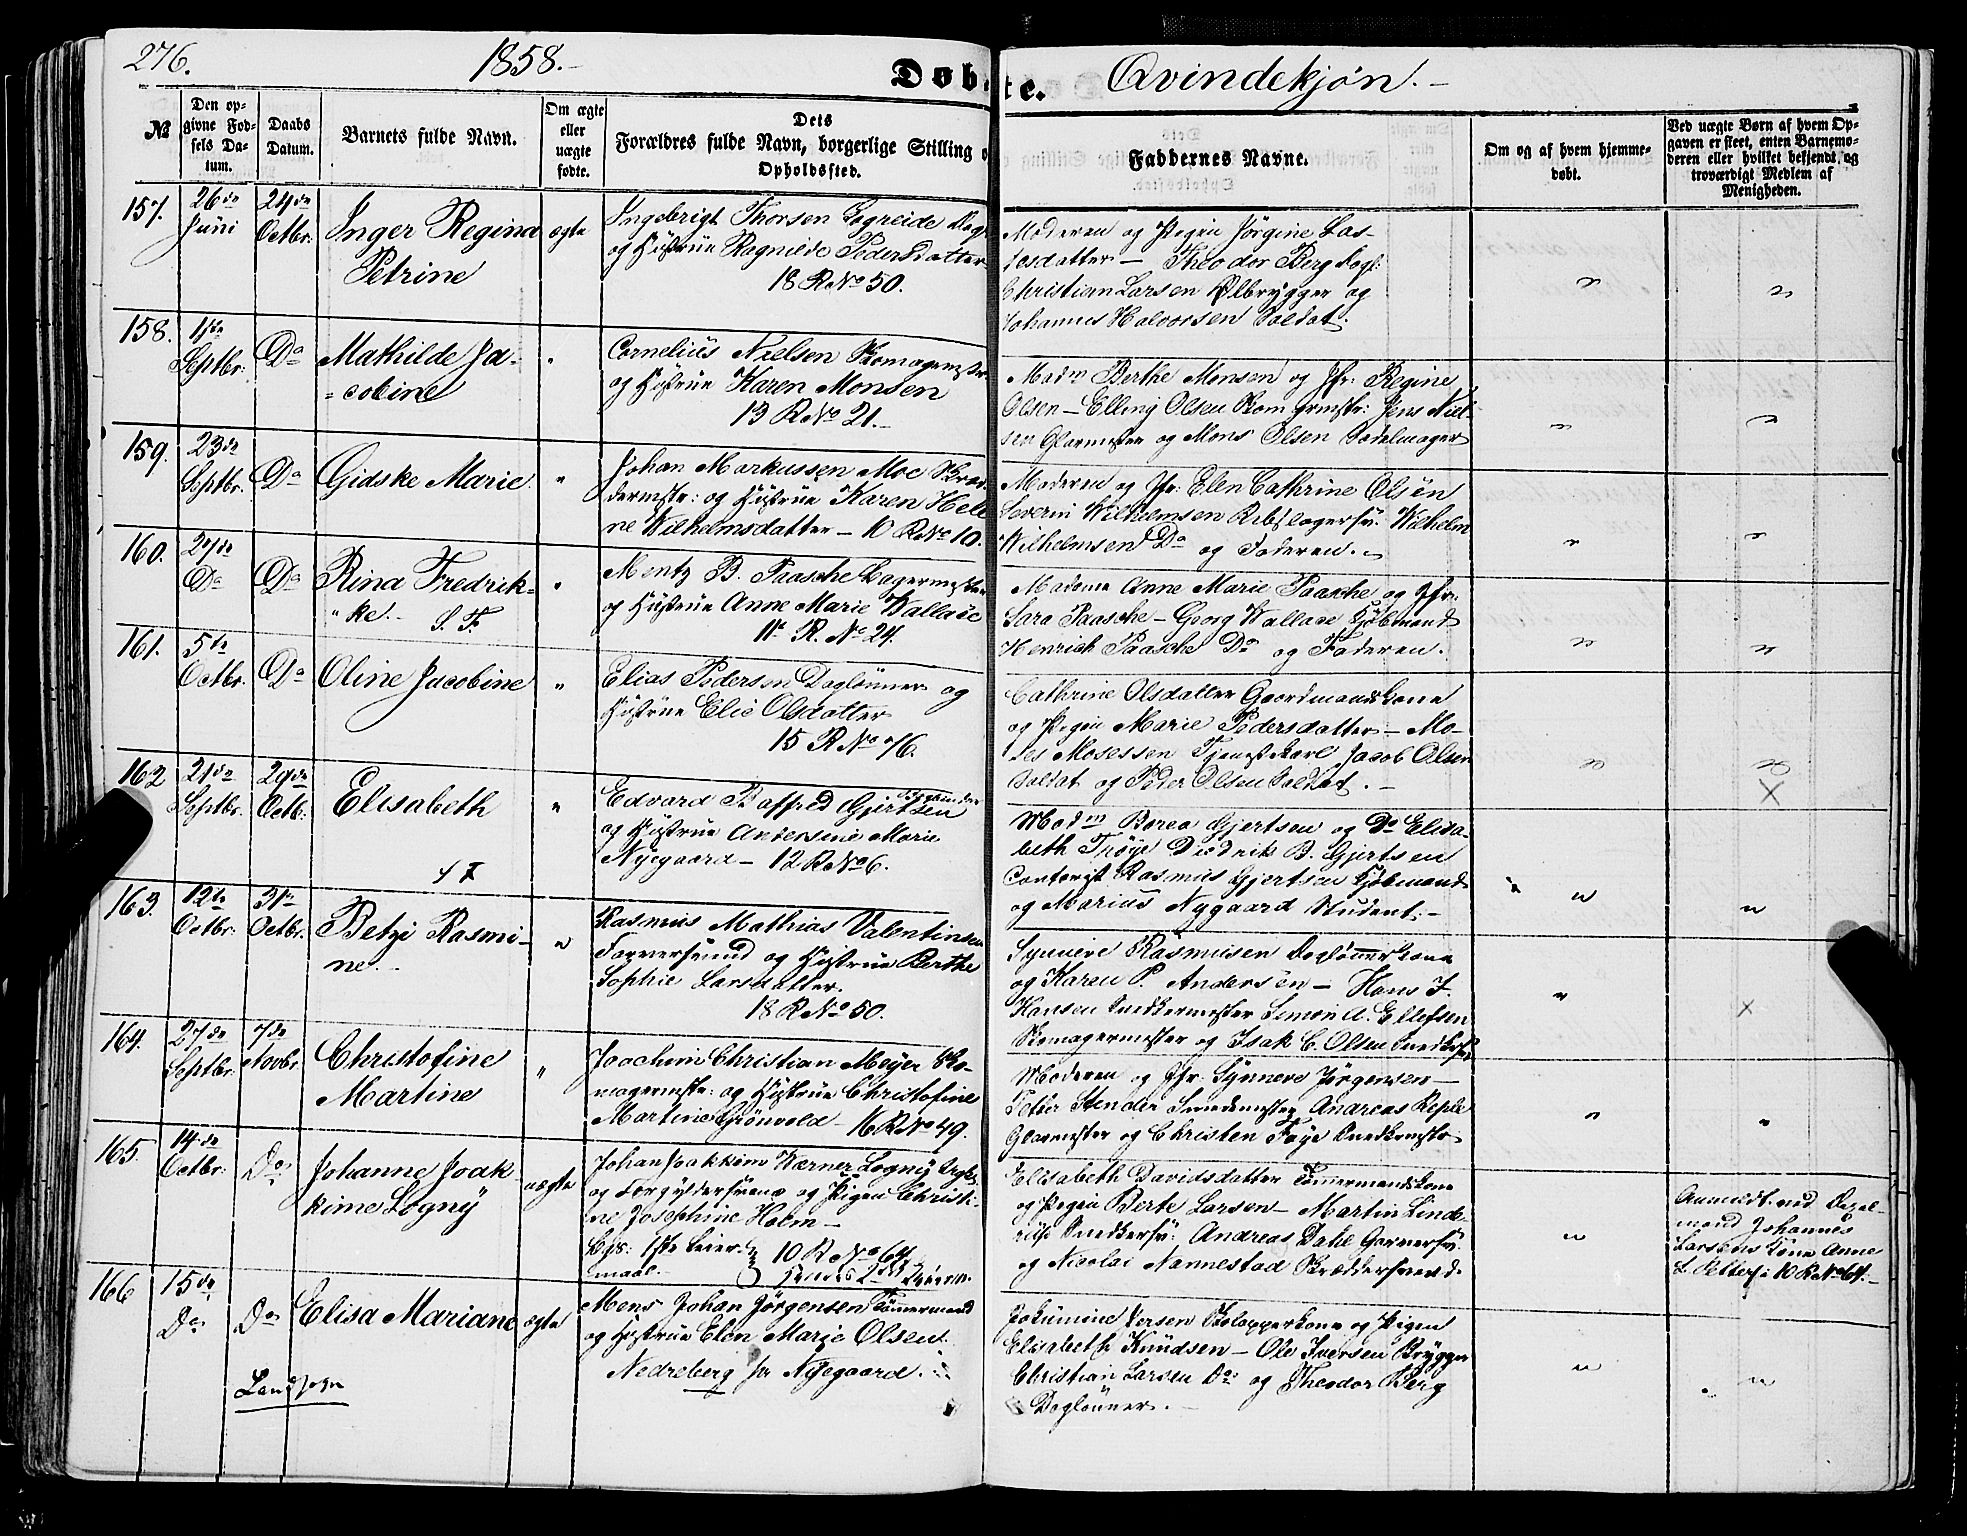 276.
1858.-
Döbte.
Qvindekjön.-
№
Den op-
givne Fød-
sels Da-
tum.
Daabs
Datum.
Barnets fulde Navn.
Om ægte
eller
uægte
fødte.
Dets
Forældres fulde Navn, borgerlige Stilling
Opholdssted.
Faddernes Navne.
Om og af hvem hjemme-
døbt.
Ved uægte Børn af hvem Op-
gaven er skeet, enten Barnemo-
deren eller hvilket bekjendt og
troværdigt Medlem af
Menigheden.
157. 26de Juni 24de Octbr:
Inger Regina
Petrine
ægte
Ingebrigt Thorsen
og Hustrue Ragnilde Pedersdatter
18 R No 50.
Moderen og Pigen Jörgine Las-
sesdatter - Theodor Berg Dagl:
Christian Larsen Ølbrygger og
Johannes Halvorsen Soldat.
158. 1ste Septbr: Do
Mathilde Ja-
=cobine
"
Cornelius Nielsen Skomagermester
og Hustrue Karen Monsen
13 R No 21.-
Madm Berthe Monsen og Jfr: Regine
Olsen - Elling Olsen Skomgrmstr: Jens Niel-
sen Glarmester og Mons Olsen Sadelmager
159. 23de Septbr. Do
Gidske Marie
"
Johan Markussen Moe Skræ-
dermstr: og Hustrue Karen Hele
ne Wilhelmsdatter - 10 R No 10.
Moderen og Jfr: Elen Cathrine Olsen
Severin Wilhelmsen Rebslagersv. Wilhelm
Wilhelmsen Do og Faderen.
160. 27de Do Do
Rina Fredrik-
"ke.- S. F.
"
Mentz B. Paasche Bagermester
og Hustrue Anne Marie Wallace
11te R. No 24.
Madame Anne Marie Paasche og Jfr:
Sara Paasche - Georg Wallace Kjöbmand
Henrich Paasche Do og Faderen.
161. 5te Octbr. Do
Oline Jacobine
"
Elias Pedersen Daglönner og
Hustrue Elie Olsdatter
15 R No 76.
Cathrine Olsdatter Gaardmandskone
og Pigen Marie Pedersdatter - Mo-
ses Mosessen Tjenestekarl Jacob Olsen
Soldat og Peder Olsen Soldat. -
162 21de Septbr. 29de Octb.
Elisabeth
"
Edvard B Gjertsen Bogbinder
og Hustrue Andersine Marie
Nyegaard - 12 R No 6.
X
Madm Borea Gjertsen og Do Elisa-
beth Tröye Diedrik B. Gjertsen
Contorist Rasmus Gjertsen Kjöbmand
og Marius Nygaard Student.-
163. 12te Octbr: 31te Octbr.
Betzi Rasmi-
ne.-
"
Rasmus Mathias Valentinsen
Farversvend og Hustrue Berthe
Sophie Larsdatter.
18 R No 50.
Synneve Rasmusen Daglönnerkone
og Karen P. Andersen - Hans J.
Hansen Snedkermester Simon A. Ellefsen
Skomagermester og Isak C. Olsen
X
164. 27de Septbr. 7de Novbr.
Christofine
Martine
"
Joachim Christian Meyer Sko-
magermstr: og Hustrue Christofine
Martine Grönvold - 16 R No 49.
Moderen og Jfr: Synneve Jörgensen -
Peter Stender Smedemester Andreas Reple
Glarmester og Christen Föye Snedkermstr
165. 14de Octbr: Do
Johanne Joak-
kime Logny
uægte
Johan Joakkim Værner Logny
og Forgyldersvend og Pigen Christi-
ne Josephine Holm -
Bgs: 1ste Leier-
maal.-
10 R No 64
Elisabeth Davidsdatter Tömmermandskone
og Pigen Berte Larsen - Martin Linde-
Snedkersv: Andreas Dahl Garversv.
og Nicolai Nannestad Skræddersvend.
Anmeldt ved
mand Johannes
Larsens Kone Anne
10 R No 64.-
166 15de Do Do
Elisa Mariane
ægte
Mons Johan Jörgensen Tömmermand
og Hustrue Elen Marie Olsen
Nedreberg pr Nyegaard.
Landsogn
Jokumine Iversen kone og Pigen
Elisabeth Knudsen - Ole Iversen Brygger
Christian Larsen Do og Theodor Berg
Daglönner. -